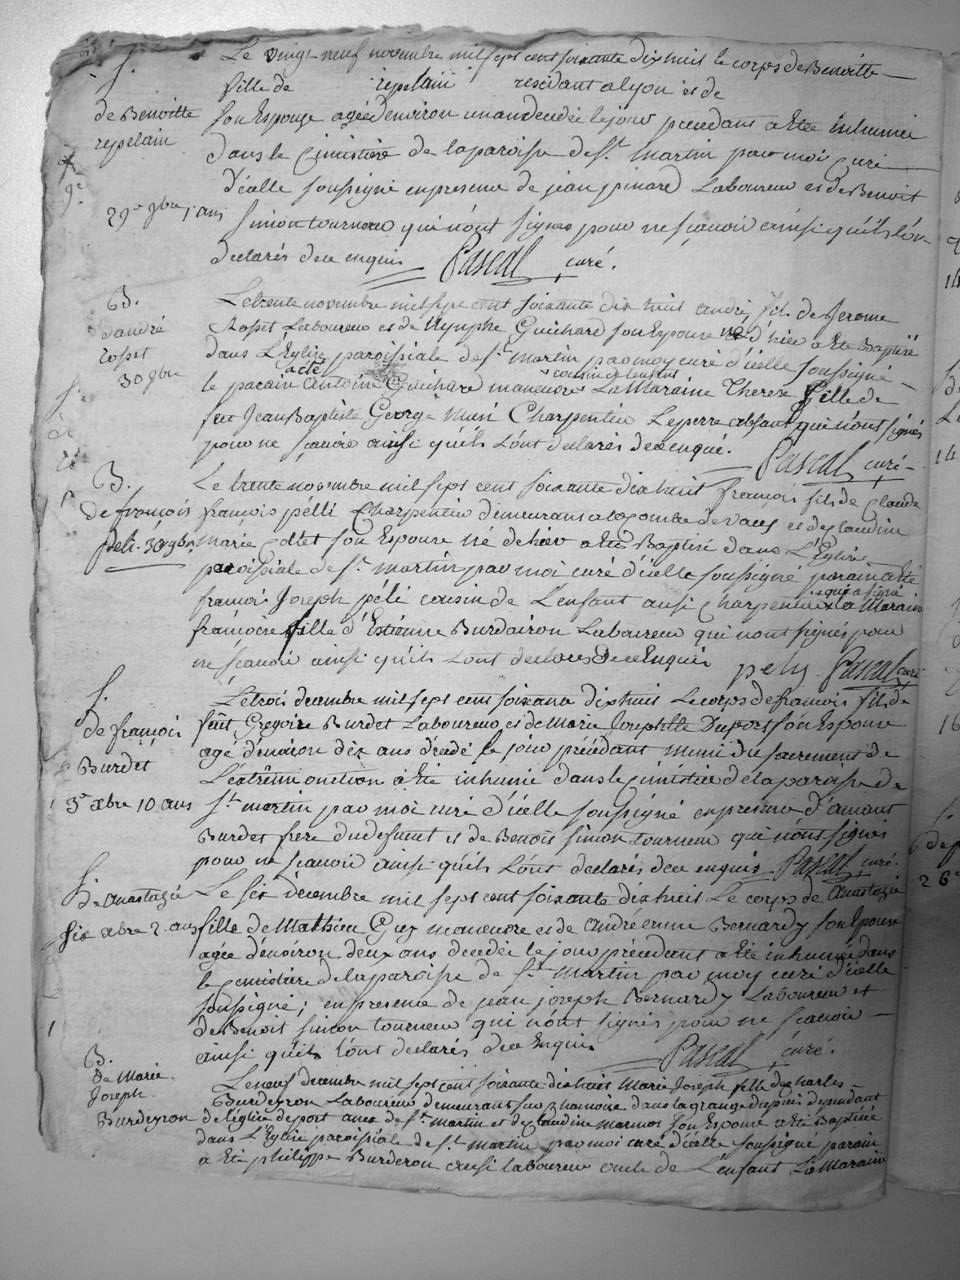 S.
de Benoitte
repelain
29e 9bre 1 ans
Le vingt neuf novembre mil sept cent soixante dix huit le corps de Benoitte
fille de repelain residant a lyon et de
son Epouse agée d'environ un an decedée le jour précédant a été inhumée
dans le Cimistière de la paroisse de st martin par moi curé
d'icelle soussigné en presence de jean pinard Laboureur et de Benoit
simon tourneur qui n'ont signés pour ne sçavoir ainsi qu'ils l'ón
declarés de ce enquis Pascal curé.
B.
d'andré
rosset
30 9bre
Le trente novembre mil sept cent soixante dix huit andré fils de Jerome
Rosset Laboureur et de Nymphe Guichard son Epouse né d'hier a été Baptisé
dans L'Église paroissiale de st martin par moy curé d'icelle soussigné
le parain a été Antoine Guichard maneuvre cousin de lenfant La Maraine Therese fille de
feu Jean Baptiste George Charpentier Le pere absent qui n'ont signés
pour ne sçavoir ainsi qu'ils l'ont declarés de ce enquis. Pascal curé
B.
de françois
peli. 30 9bre
Le trente novembre mil sept cent soixante dix huit françois fils de Claude
françois péli Charpentier demeurant a la combe de vaux et de claudine
marie Collet son Epouse né de hier a été Baptisé dans L'Église
paroissiale de st martin par moi curé d'icelle soussigné parain a été
francois Joseph péli cousin de L'enfant aussi Charpentier qui a signé la Maraine
françoise fille d'Estienne Burdairon Laboureur qui n'ont signés pour
ne sçavoir ainsi qu'ils L'ont declarés de ce Enquis pely Pascal curé
S.
de françois
Burdet
3e xbre 10 ans
Le trois decembre mil sept cent soixante dix huit Le corps de francois fils de
feüt Gregoire Burdet Laboureur et de Marie Josephtte Duport son Epouse
agé d'environ dix ans décedé le jour précédant muni du sacrement de
L'extrême onction a été inhumé dans le cimistière de la paroisse de
st martin par moi curé d'icelle soussigné en presence d'amant
Burdet frere du defunt et de Benoit simon tourneur qui n'ont signés
pour ne sçavoir ainsi qu'ils L'ont declarés de ce enquis Pascal curé.
S. de anastazie
six xbre 2 ans
Le six décembre mil sept cent soixante dix huit Le corps de Anastazie
fille de Mathieu Guy maneuvre et de Andréenne Bernardy son Epouse
agée d'environ deux ans decedée le jour précédant a été inhumée dans
le cimistière de la paroisse de st martin par moy curé d'icelle
soussigné; en presence de jean joseph Bernardy Laboureur et
de Benoit simon tourneur qui n'ont signés pour ne sçavoir
ainsi qu'ils l'ont declarés de ce Enquis Pascal curé.
B.
de Marie
Joseph
Burdeyron
Le neuf decembre mil sept cent soixante dix huit Marie Joseph fille de charles
Burdeyron Laboureur demeurant sur dans la grange dependant
de l'église de de st martin et de claudine son Epouse a été Baptisée
dans L'Église paroissiale de st martin par moi curé d'icelle soussigné parain
a été philippe Burderon aussi laboureur oncle de L'enfant La Maraine